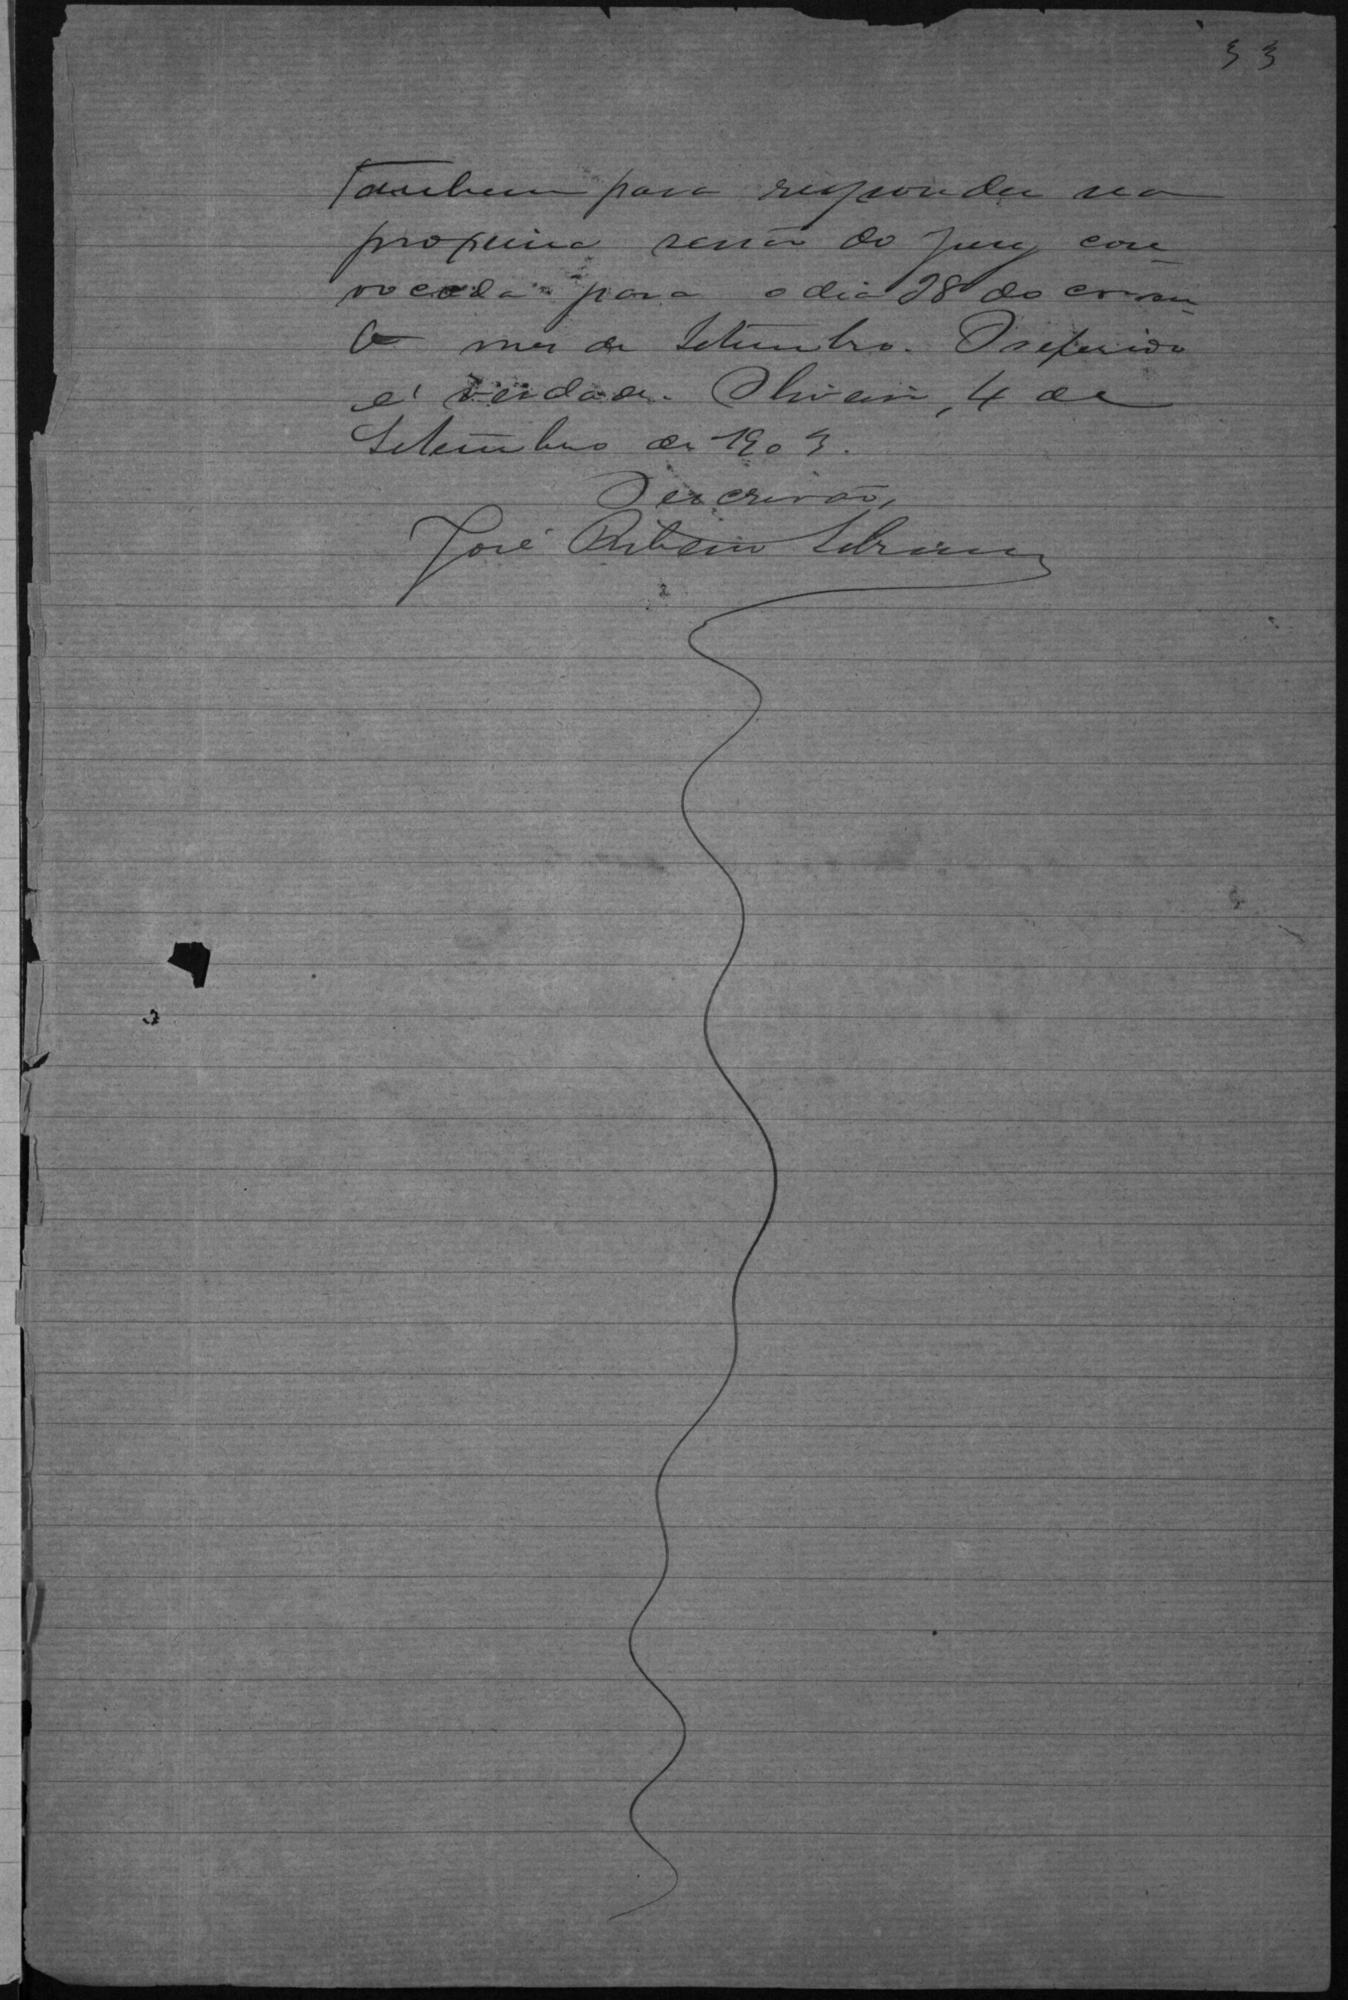 33
Tambem para responder na
proxima sessão do jury con-
vocada para o dia 28 do corren-
te mez de Setembro. O referido
é verdade. Oliveira, 4 de
Setembro de 1903.
O escrivão,
José Ribeiro